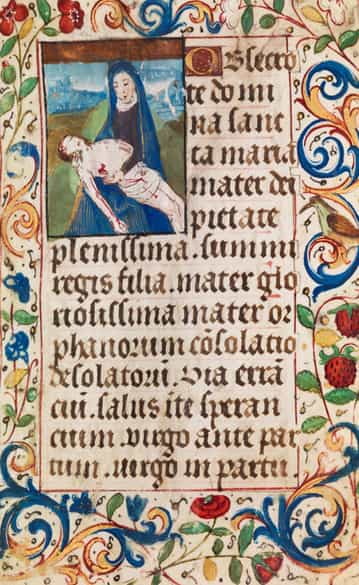 Obsecro
te domi
na sanc
ta maria
mater dei
pietate
plenissima . summi
regis filia . mater glo
riosissima mater or
phanorum cōsolatio
desolatorū . Via errā
ciū . salus ī te speran
cium . virgo ante par
tum . virgo in partu .